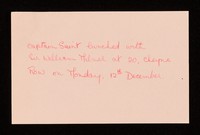 Captain Scott lunched with
Sir William Thiselt at 30, Cheyne
Row on Monday, 12th December